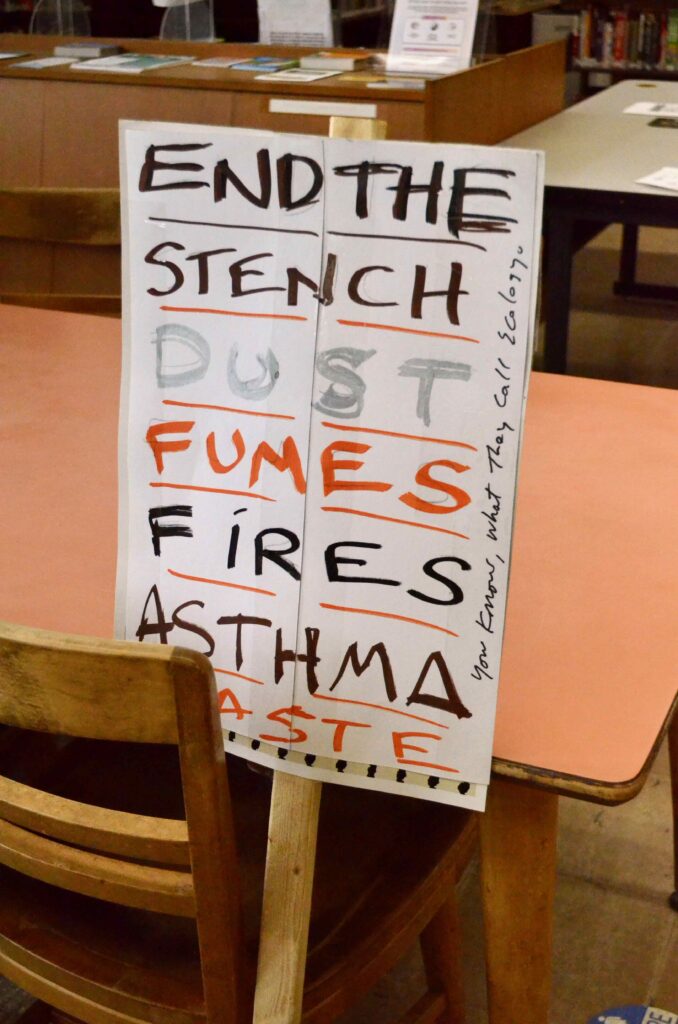 END THE
STENCH
DUST
FUMES
FIRES
ASTHMA
ASTE
You Know, what They Call Ecology.